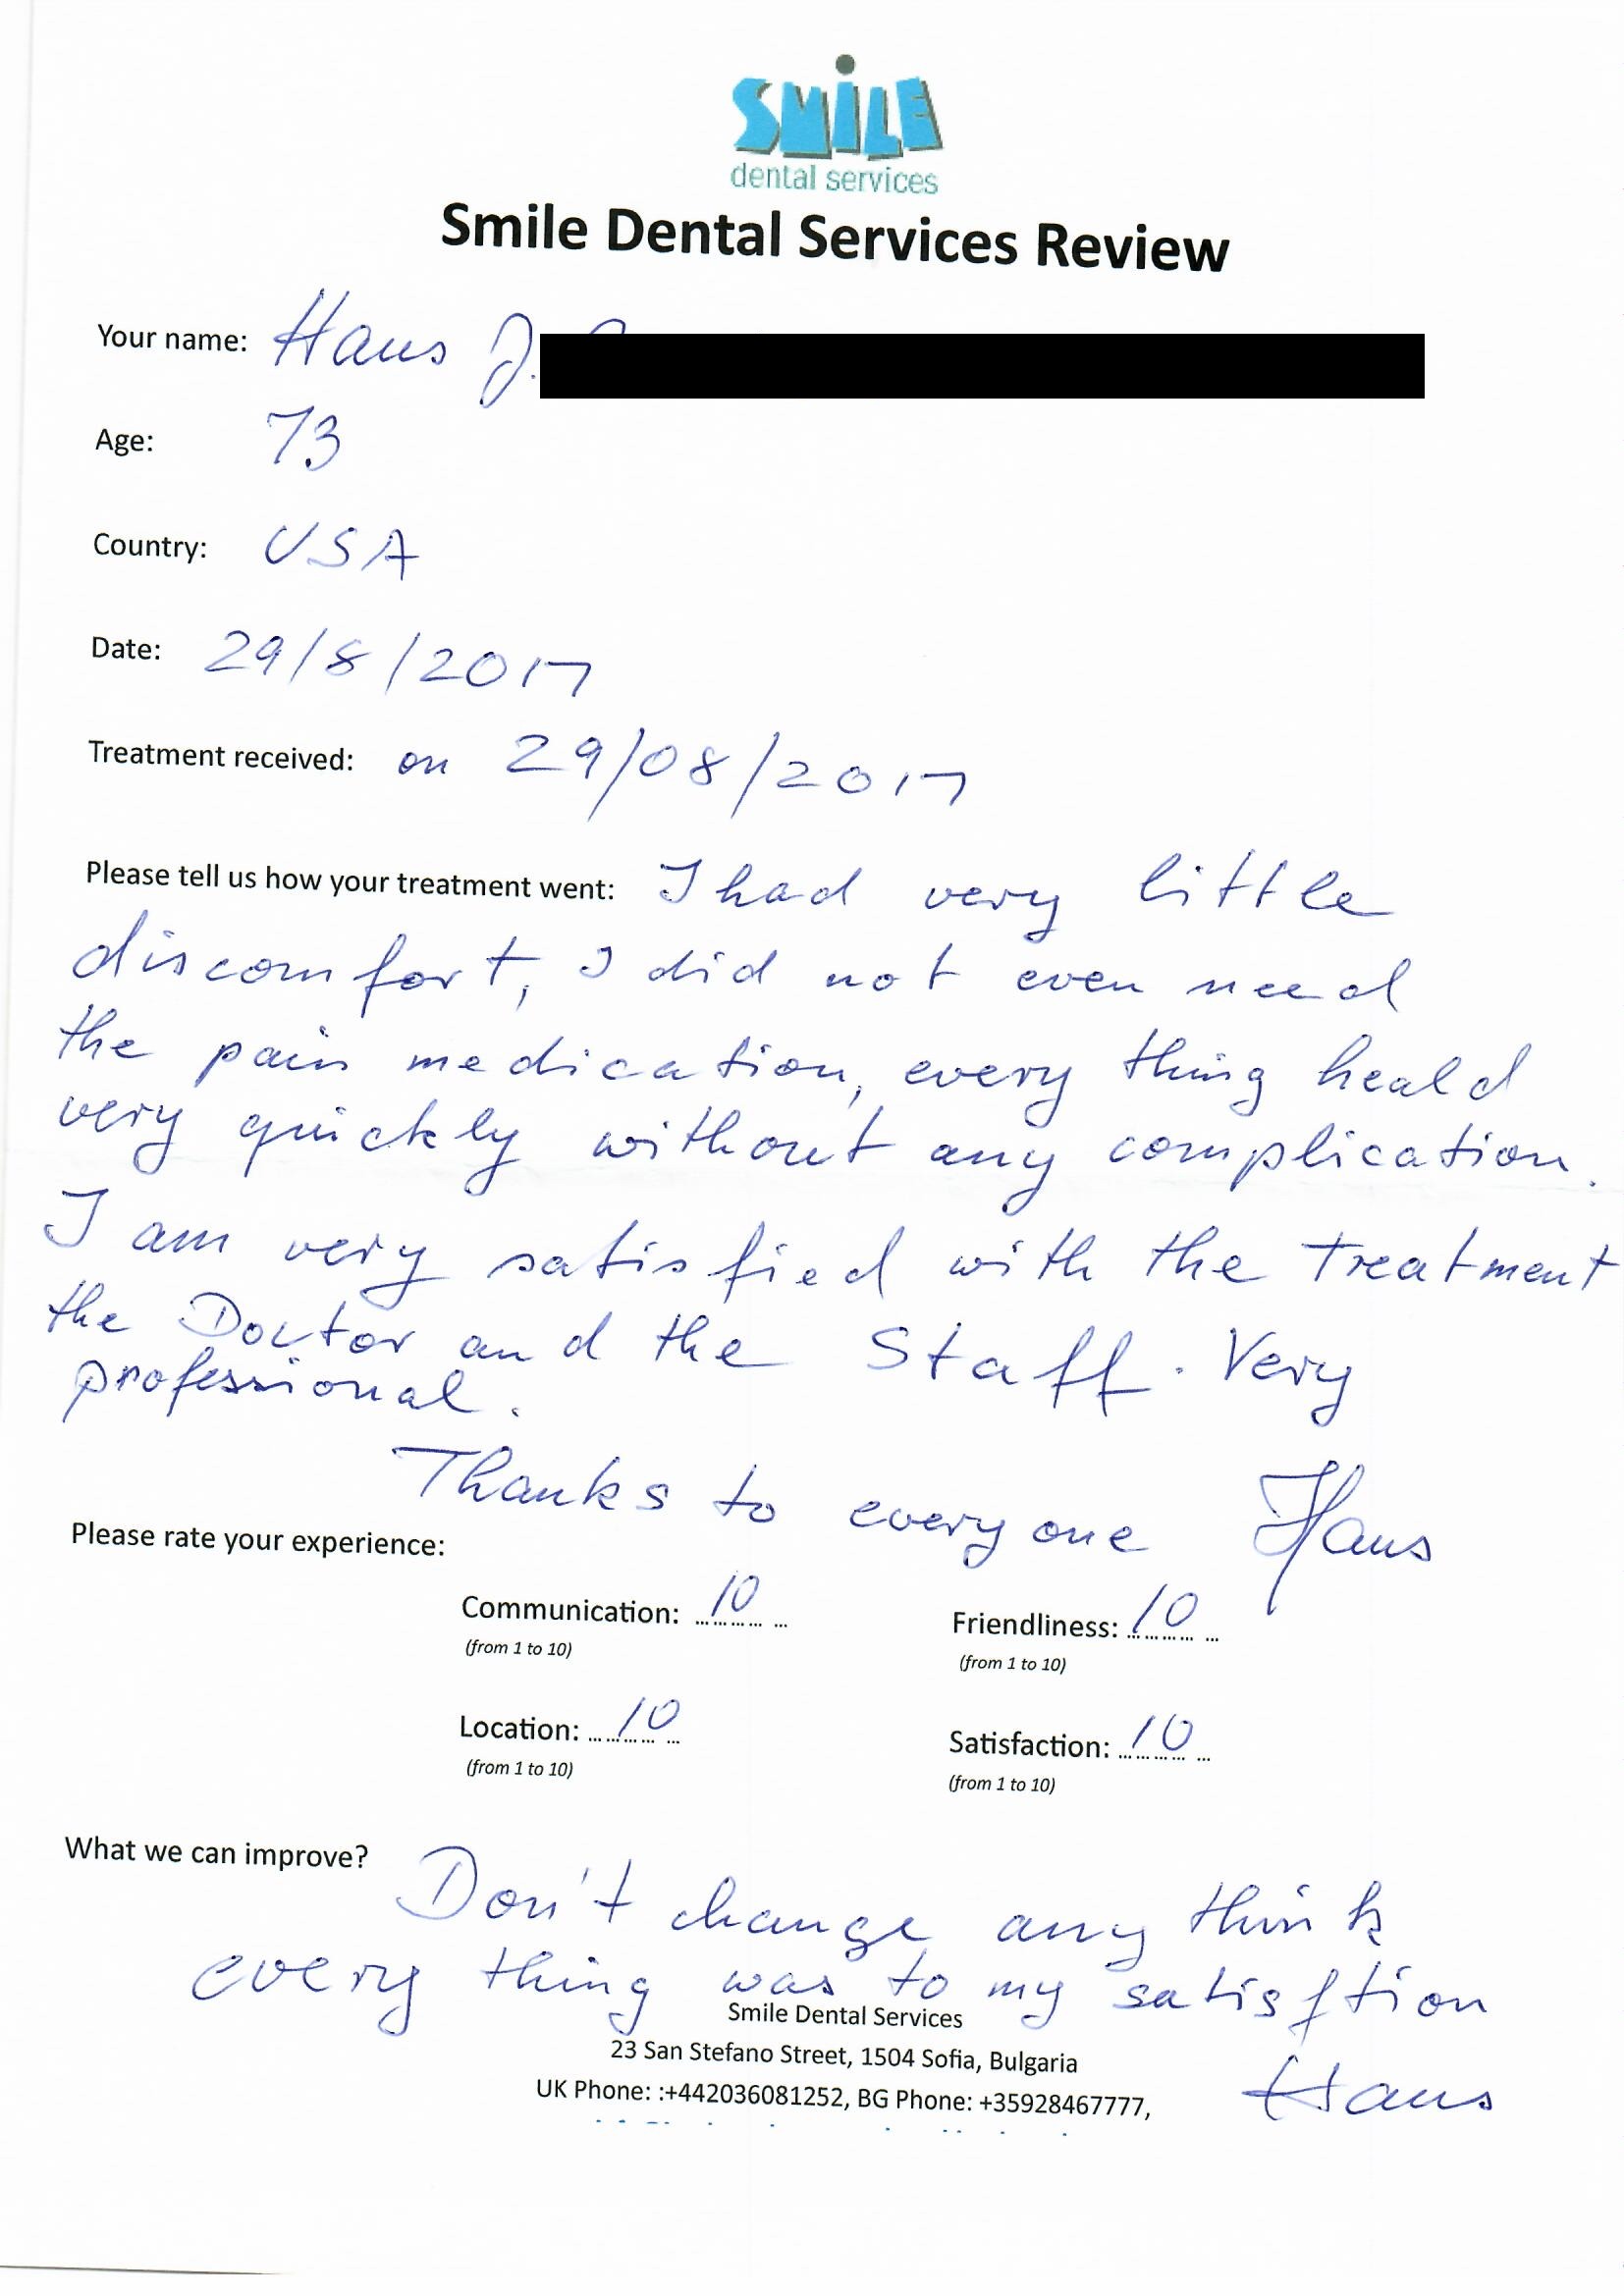 SMiLE
dental services
Smile Dental Services Review
Your name: Hans J.
Age: 73
Country: USA
Date: 29/8/2017
Treatment received: on 29/08/2017
Please tell us how your treatment went: I had very little
discomfort, I did not even need
the pain medication, every thing heald
very quickly without any complication.
I am very satisfied with the treatment
the Doctor and the Staff. Very
professional.
Thanks to everyone Hans
Please rate your experience:
Communication: 10 Friendliness: 10
(from 1 to 10) (from 1 to 10)
Location: 10 Satisfaction: 10
(from 1 to 10) (from 1 to 10)
What we can improve? Don't change any think
every thing was to my satisftion
Smile Dental Services
23 San Stefano Street, 1504 Sofia, Bulgaria
UK Phone: :+442036081252, BG Phone: +35928467777,
Hans